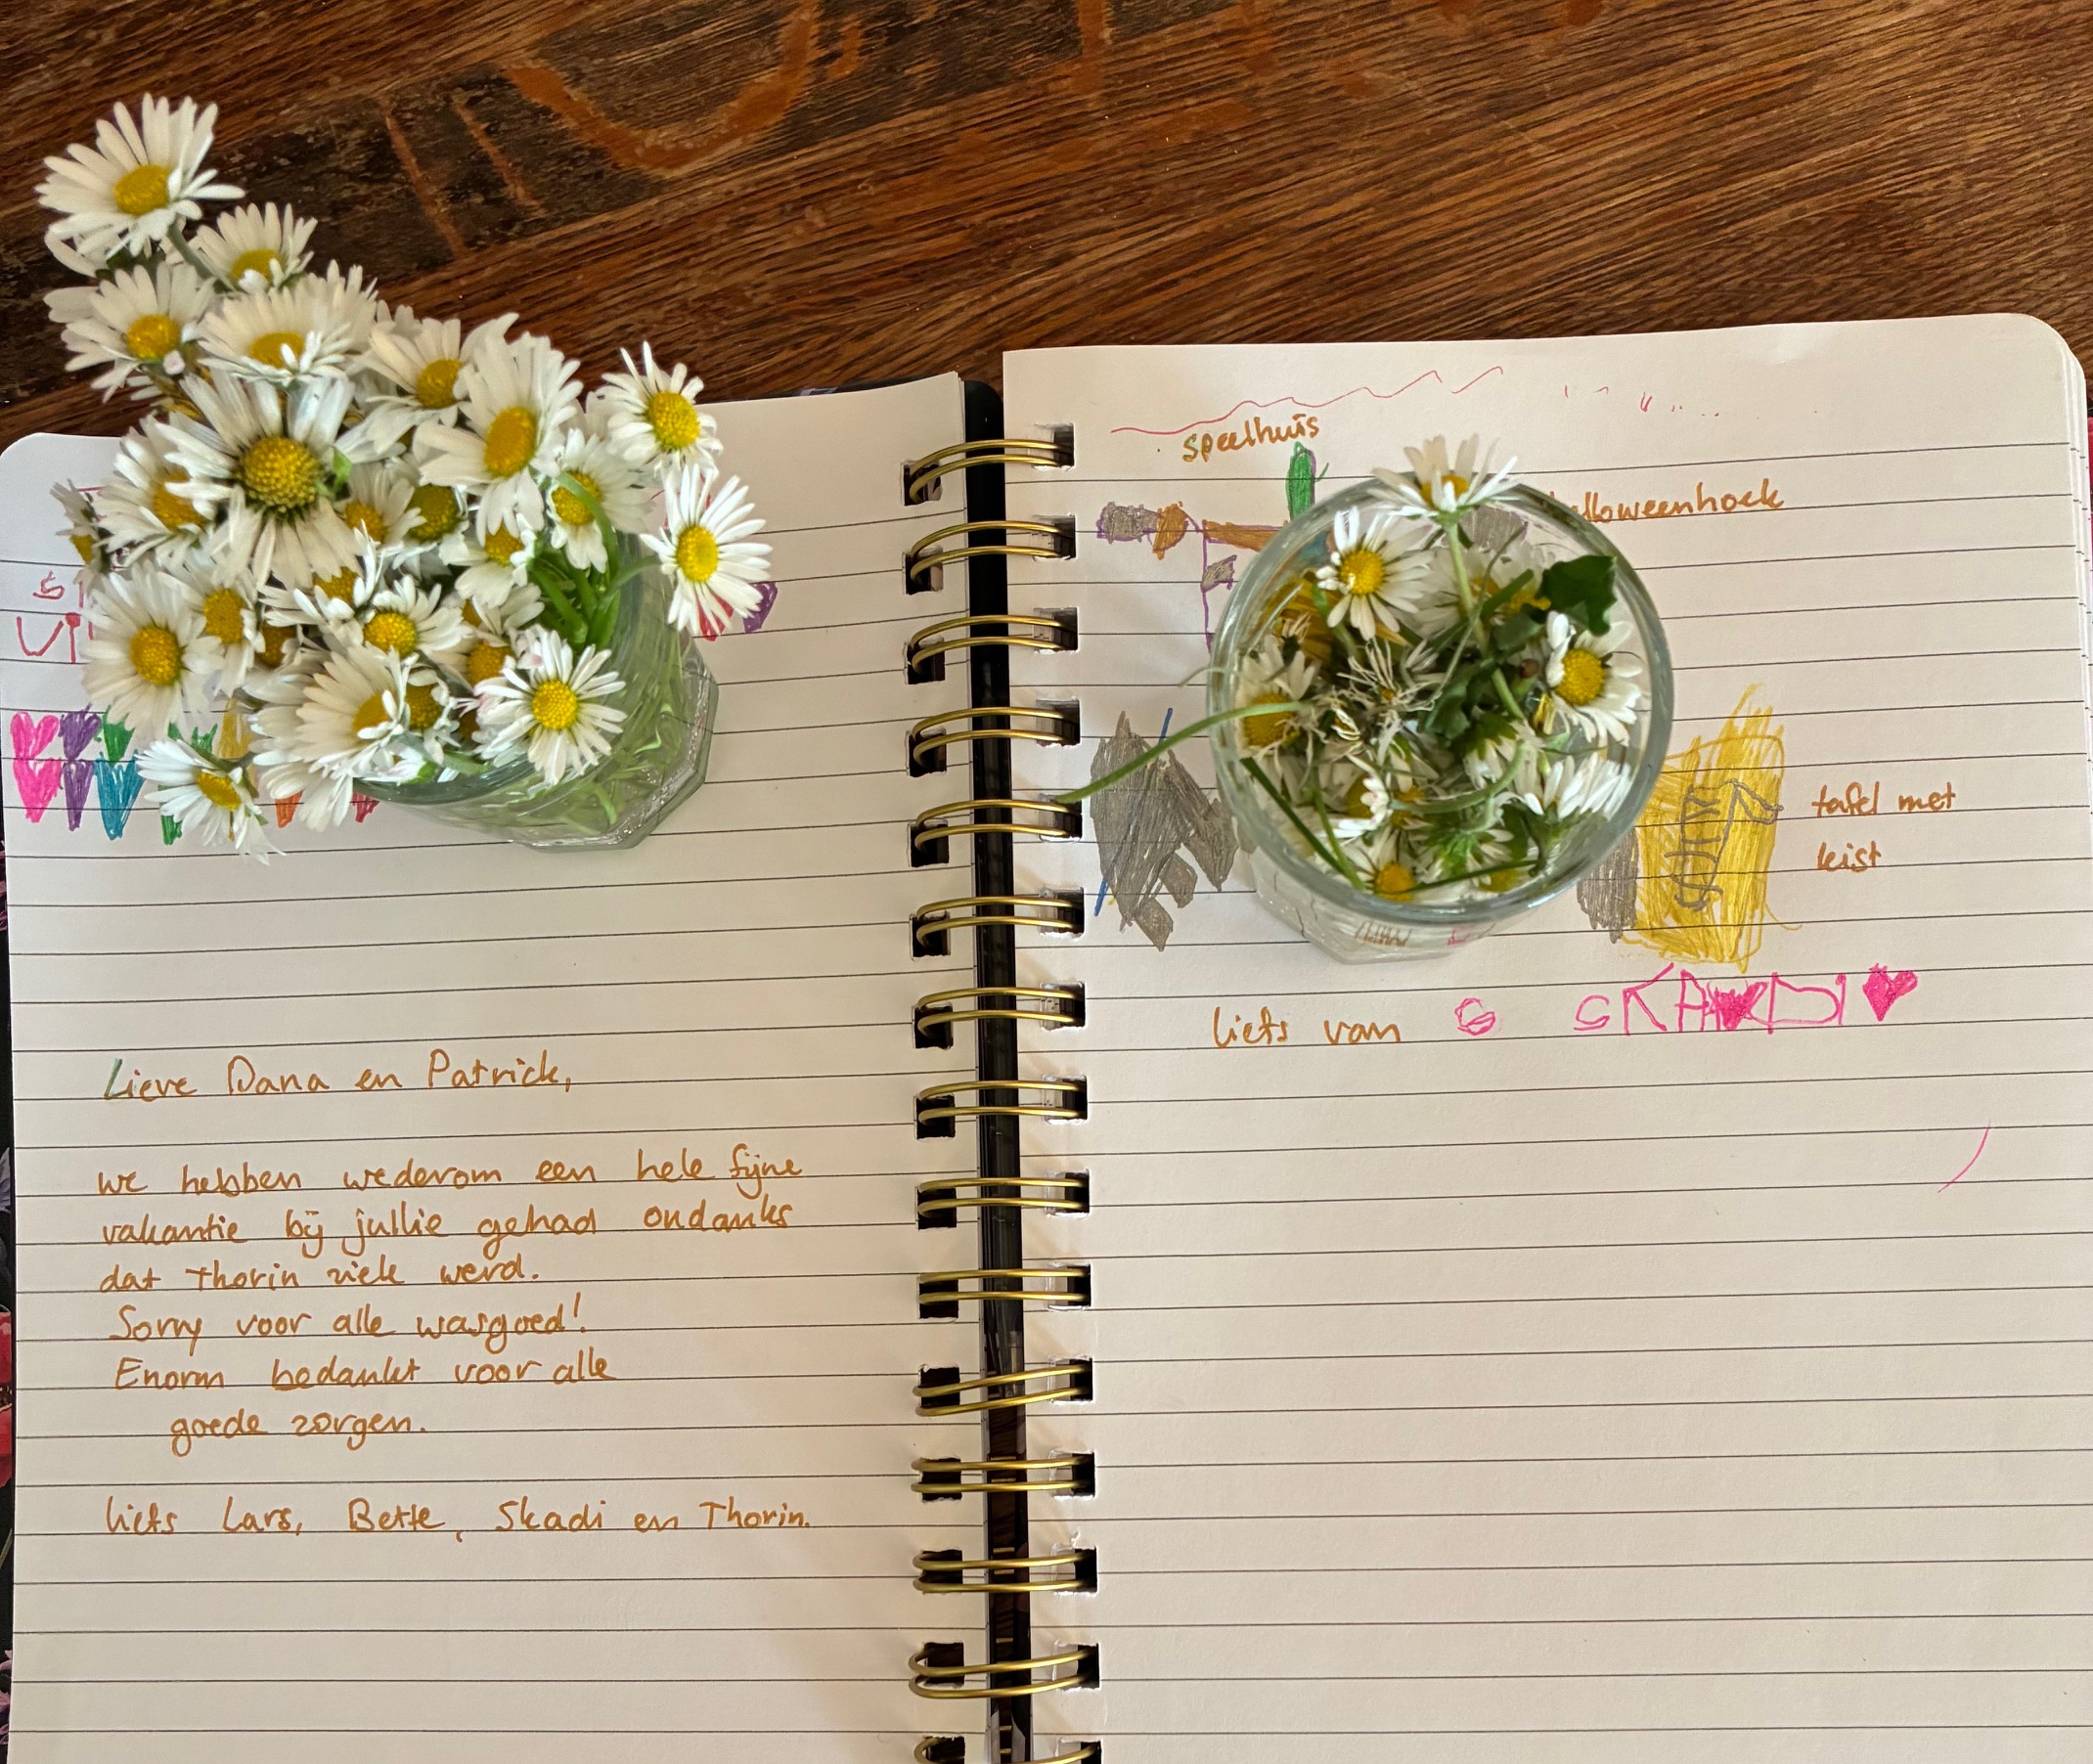 Lieve Dana en Patrick,
we hebben wederom een hele fijne
vakantie bij jullie gehad ondanks
dat Thorin ziek werd.
Sorry voor alle wasgoed!
Enorm bedankt voor alle
goede zorgen.
liefs Lars, Bette, Skadi en Thorin.
speelhuis
lloweenhoek
tafel met
kist
liefs van SKADI